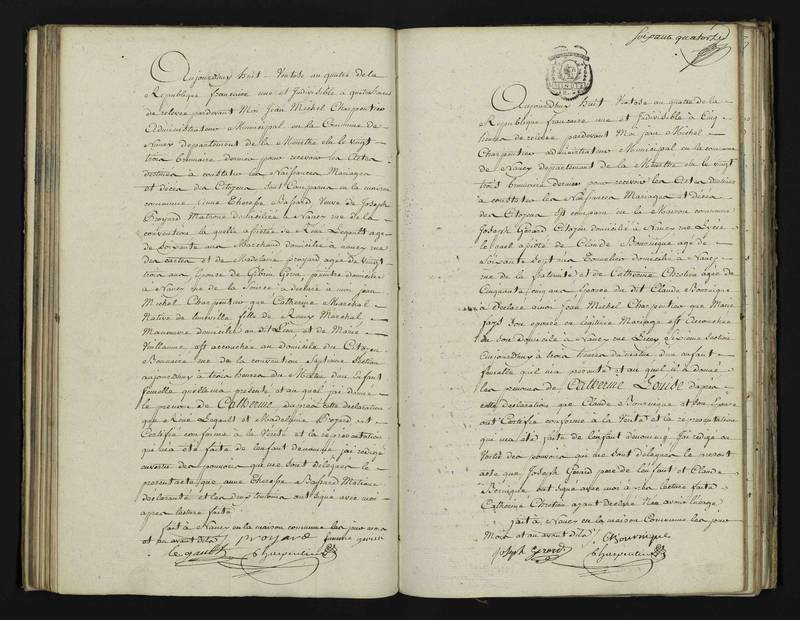 Aujourdhuy huit Ventose an quatre de la
Republique francaise une et Indivisible a quatre heures
de relevée pardevant Moi Jean Michel Charpentier
Administrateur Municipal en la Commune de
Nancy departement de la Meurthe elu le vingt
trois brumaire dernier pour recevoir les Actes
destinés a constater les Naissances Mariages
et décès des Citoyens Sont Comparus en la maison
commune Anne Therese Bassard Veuve de Joseph
Proyard Matrone domiciliée a Nancy rue de la
convention la quelle assistée de René Legault agé
de Soixante ans Marchand domicilié a nancy rue
des et de Madelaine proyard agée de vingt
trois ans Epouse de peintre domicilié
a Nancy rue de la a déclaré a moi jean
Michel Charpentier que Catherine Marechal
Native de Luneville fille de Marechal
Manoeuvre domicilié au dit Lieu et de Marie
Vuillaume est accouchée au domicile du Citoyen
rue de la convention Septieme Section
aujourdhuy a trois heures du Matin d'un Enfant
femelle quelle m'a presenté et au quel j'ai donné
le prenom de Catherine dapres cette declaration
que René Legault et Madelaine Proyard ont
Certifié conforme a la Vérité et la representation
qui m'a été faite de lenfant denommé j'ai redigé
en vertu des pouvoirs qui me sont délégués le
present acte que Anne Therese Bassard Matrone
declarante et les deux temoins ont signé avec moi
apres lecture faite
fait a Nancy en la maison commune les jour mois
et an avant dits
Legault proyard
Charpentier
soixante quatorze
Aujourdhuy huit Ventose an quatre de la
Republique francaise une et Indivisible a Cinq
heures de relevée pardevant Moi jean Michel
Charpentier administrateur Municipal en la commune
de Nancy departement de la Meurthe elu le vingt
trois brumaire dernier pour recevoir les Actes destinés
a constater les Naissances Mariages et Décès
des Citoyens Est comparu en la Maison commune
Joseph Gérard Citoyen domicilié a Nancy rue
le quel assisté de Claude Bournique agé de
Soixante sept ans Tonnelier domicilié a Nancy
rue de la fraternité et de Catherine Chretien agée de
Cinquante cinq ans Epouse du dit Claude Bournique
a Declaré a moi Jean Michel Charpentier que Marie
son epouse en légitime Mariage est accouchée
de son domicile a Nancy rue Section
aujourdhuy a trois heures d'un enfant
femelle quil m'a presenté et au quel il a donné
les prenoms de Catherine Louise dapres
cette declaration que Claude Bournique et son Epouse
ont Certifié conforme a la Vérité et la representation
qui m'a été faite de lenfant denommé j'ai redigé en
Vertu des pouvoirs qui me sont délégués le present
acte que Joseph Gérard pere de l'enfant et Claude
Bournique ont signé avec moi apres lecture faite
Catherine Chretien ayant declaré n'en avoir l'usage
fait a Nancy en la maison Commune les jour
Mois et an avant dits
joseph gerard C bournique
Charpentier